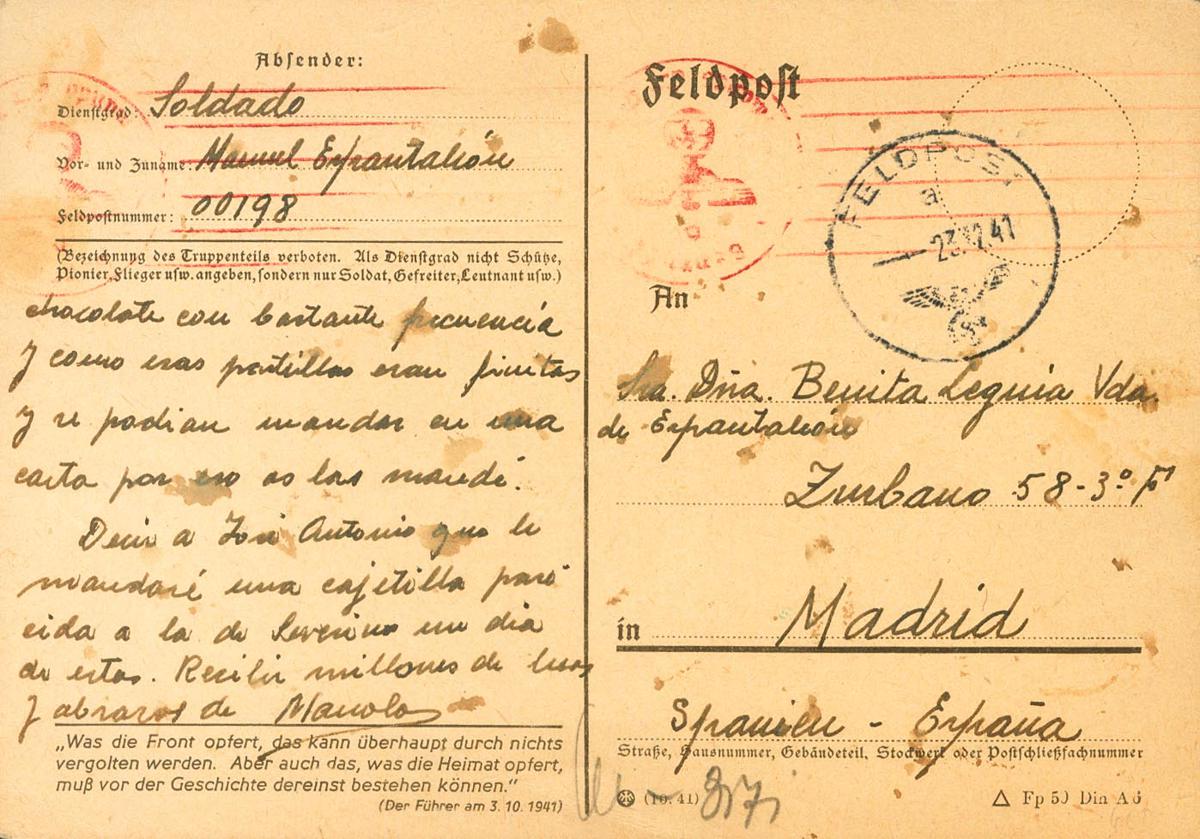 Absender:
Dienstgrad: Soldado
Vor- und Zuname: Manuel Espantaleón
Feldpostnummer: 00198
(Bezeichnung des Truppenteils verboten. Als Dienstgrad nicht Schütze,
Pionier, Flieger usw. angeben, sondern nur Soldat, Gefreiter, Leutnant usw.)
chocolate con bastante frecuencia
y como esas pastillas eran finitas
y se podian mandar en una
carta por eso os las mandé.
Decir a José Antonio que le
mandaré una cajetilla pare
cida a la de Severino un dia
de estos. Recibir millones de besos
y abrazos de Manolo
„Was die Front opfert, das kann überhaupt durch nichts
vergolten werden. Aber auch das, was die Heimat opfert,
muß vor der Geschichte dereinst bestehen können.“
(Der Führer am 3. 10. 1941)
Feldpost
FELDPOST
a
23.12.41
An
Sra. Dña. Benita Leguía Vda.
de Espantaleón
Zurbano 58-3º F
in Madrid
Spanien - España
Straße, Hausnummer, Gebäudeteil, Stockwerk oder Postschließfachnummer
(10. 41)
Fp 50 Din A6